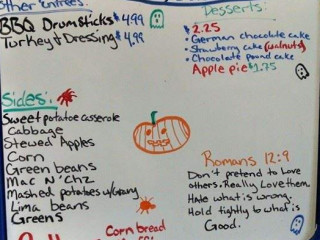 Other Entrees:
BBQ Drumsticks $4.99
Turkey & Dressing $4.99
Desserts:
$2.25
• German chocolate cake
• Strawberry cake (walnuts)
• Chocolate pound cake
Apple pie $1.75
Sides:
Sweet potatoe casserole
Cabbage
Stewed Apples
Corn
Green beans
Mac N' Chz
Mashed potatoes w/Gravy
Lima beans
Greens
Corn bread
Romans 12:9
Don't pretend to Love
others. Really Love them.
Hate what is wrong.
Hold tightly to what is
Good.